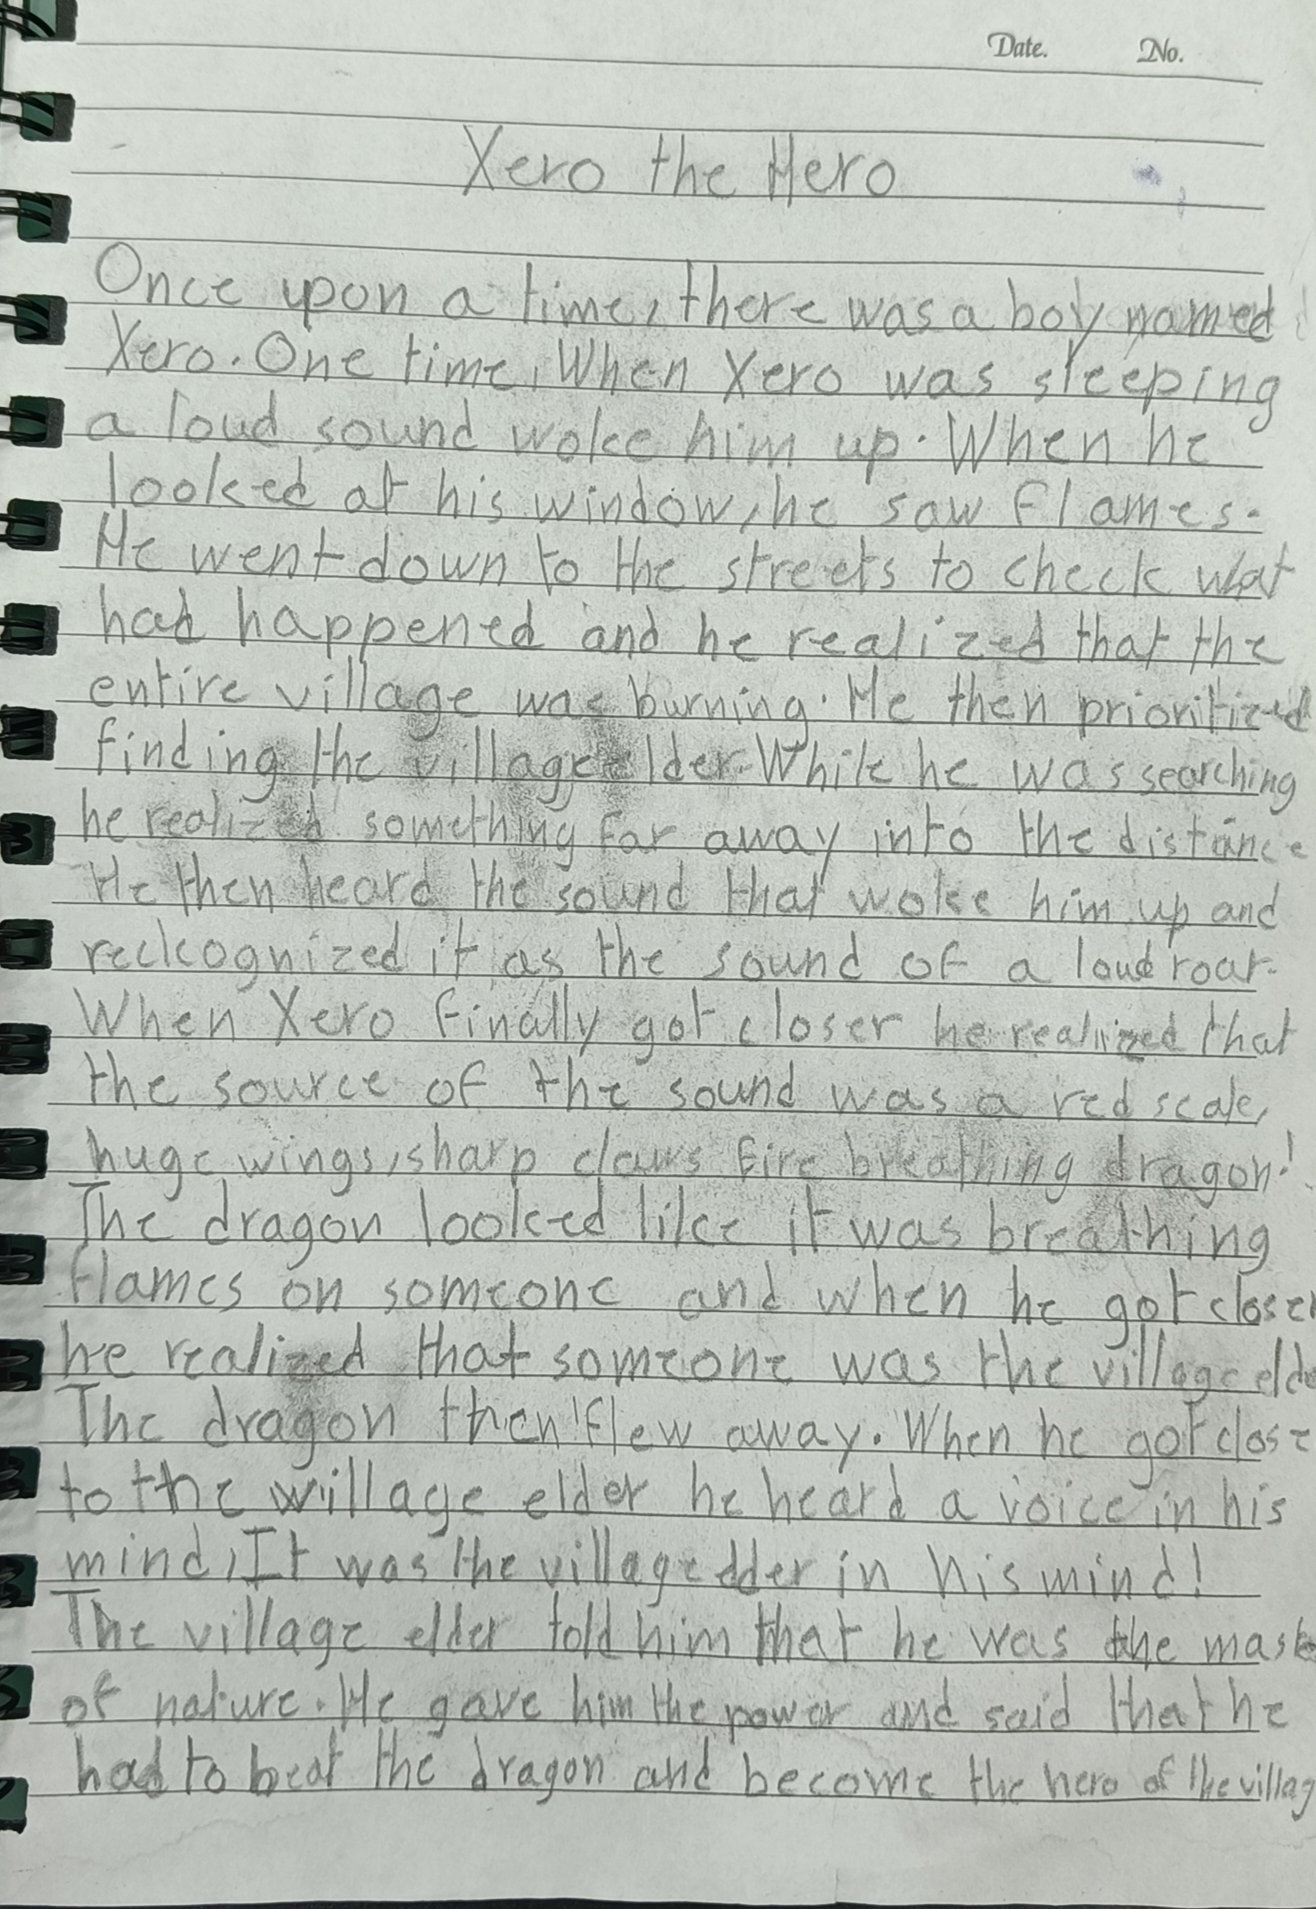 Date. No.
Xero the Hero
Once upon a time, there was a boy named
Xero. One time, When Xero was sleeping
a loud sound woke him up. When he
looked at his window, he saw flames.
He went down to the streets to check what
had happened and he realized that the
entire village was burning. He then prioritized
finding the village elder. While he was searching
he realized something far away into the distance
He then heard the sound that woke him up and
reckognized it as the sound of a loud roar.
When Xero finally got closer he realized that
the source of the sound was a red scale,
huge wings, sharp claws fire breathing dragon!
The dragon looked like it was breathing
flames on someone and when he got closer
he realized that someone was the village elde
The dragon then flew away. When he got close
to the willage elder he heard a voice in his
mind, It was the village elder in his mind!
The village elder told him that he was the maste
of nature. He gave him the power and said that he
had to beat the dragon and become the hero of the villag